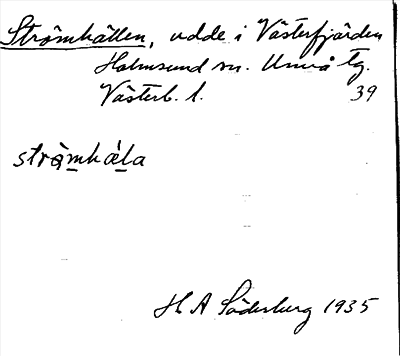 Strömhällen, udde i Västerfjärden
Holmsund sn. Umeå tg.
Västerb. l. 39
strö̀mhǽla
H A Söderberg 1935